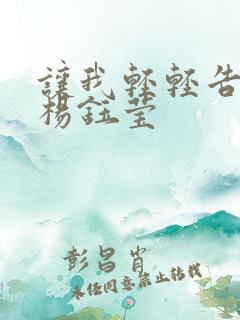 讓我輕輕告
楊鈺莹
彭昌肖
未经同意禁止转载